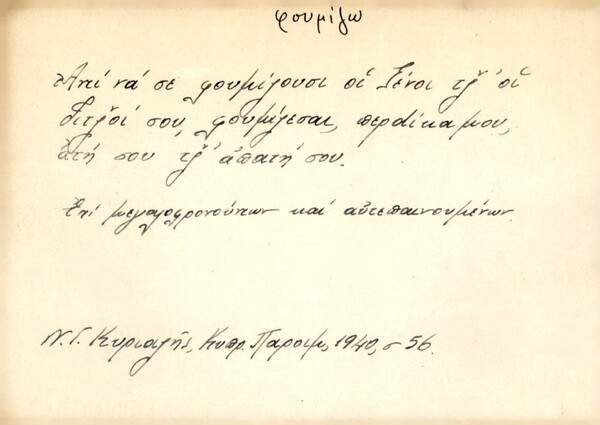 φουμίζω
Ἀντί νά σε φουμίζουσι οἱ ξένοι τζ̌' οἱ
διτζ̌οί σου, φουμίζεσαι, περdίκα μου,
ἀτή σου τζ̌' ἀπατή σου.
Ἐπί μεγαλοφρονούντων καί αὐτεπαινουμένων.
Ν. Γ. Κυριαζῆς, Κυπρ. Παροιμ, 1940, σ 56.